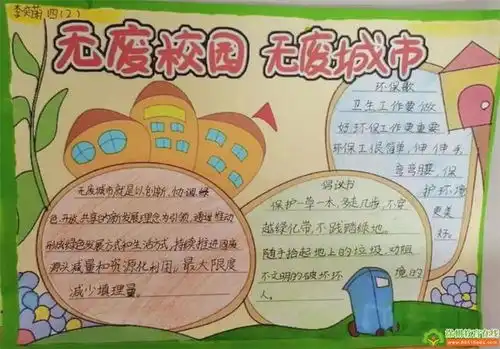 四(2)
无废校园 无废城市
环保歌
卫生工作要做好,环保工作更重要
环保工很简单,伸伸手
弯弯腰,保
护环境
更美
好。
无废城市就是以创新、协调、绿
色、开放、共享的新发展理念为引领,通过推动
形成绿色发展方式和生活方式,持续推进固废
源头减量和资源化利用,最大限度
减少填埋量。
倡议书
保护一草一木,多走几步,不穿
越绿化带,不践踏绿地。
随手拾起地上的垃圾,劝阻
不文明的破坏环境的
人。